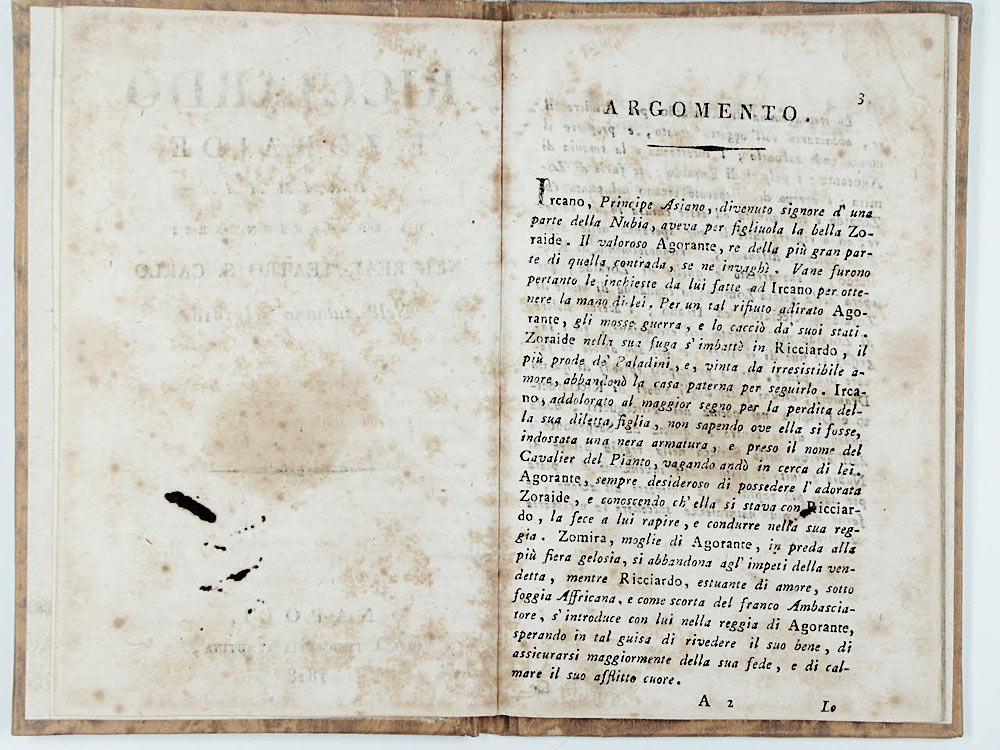 3
ARGOMENTO.
Ircano, Principe Asiano, divenuto signore d' una
parte della Nubia, aveva per figliuola la bella Zo-
raide. Il valoroso Agorante, re della più gran par-
te di quella contrada, se ne invaghì. Vane furono
pertanto le inchieste da lui fatte ad Ircano per otte-
nere la mano di lei. Per un tal rifiuto adirato Ago-
rante, gli mosse guerra, e lo cacciò da' suoi stati.
Zoraide nella sua fuga s' imbattè in Ricciardo, il
più prode de' Paladini, e, vinta da irresistibile a-
more, abbandonò la casa paterna per seguirlo. Irca-
no, addolorato al maggior segno per la perdita del-
la sua diletta figlia, non sapendo ove ella si fosse,
indossata una nera armatura, e preso il nome del
Cavalier del Pianto, vagando andò in cerca di lei.
Agorante, sempre desideroso di possedere l' adorata
Zoraide, e conoscendo ch' ella si stava con Ricciar-
do, la fece a lui rapire, e condurre nella sua reg-
gia. Zomira, moglie di Agorante, in preda alla
più fiera gelosia, si abbandona agl' impeti della ven-
detta, mentre Ricciardo, estuante di amore, sotto
foggia Affricana, e come scorta del franco Ambascia-
tore, s' introduce con lui nella reggia di Agorante,
sperando in tal guisa di rivedere il suo bene, di
assicurarsi maggiormente della sua fede, e di cal-
mare il suo afflitto cuore.
A 2 Io